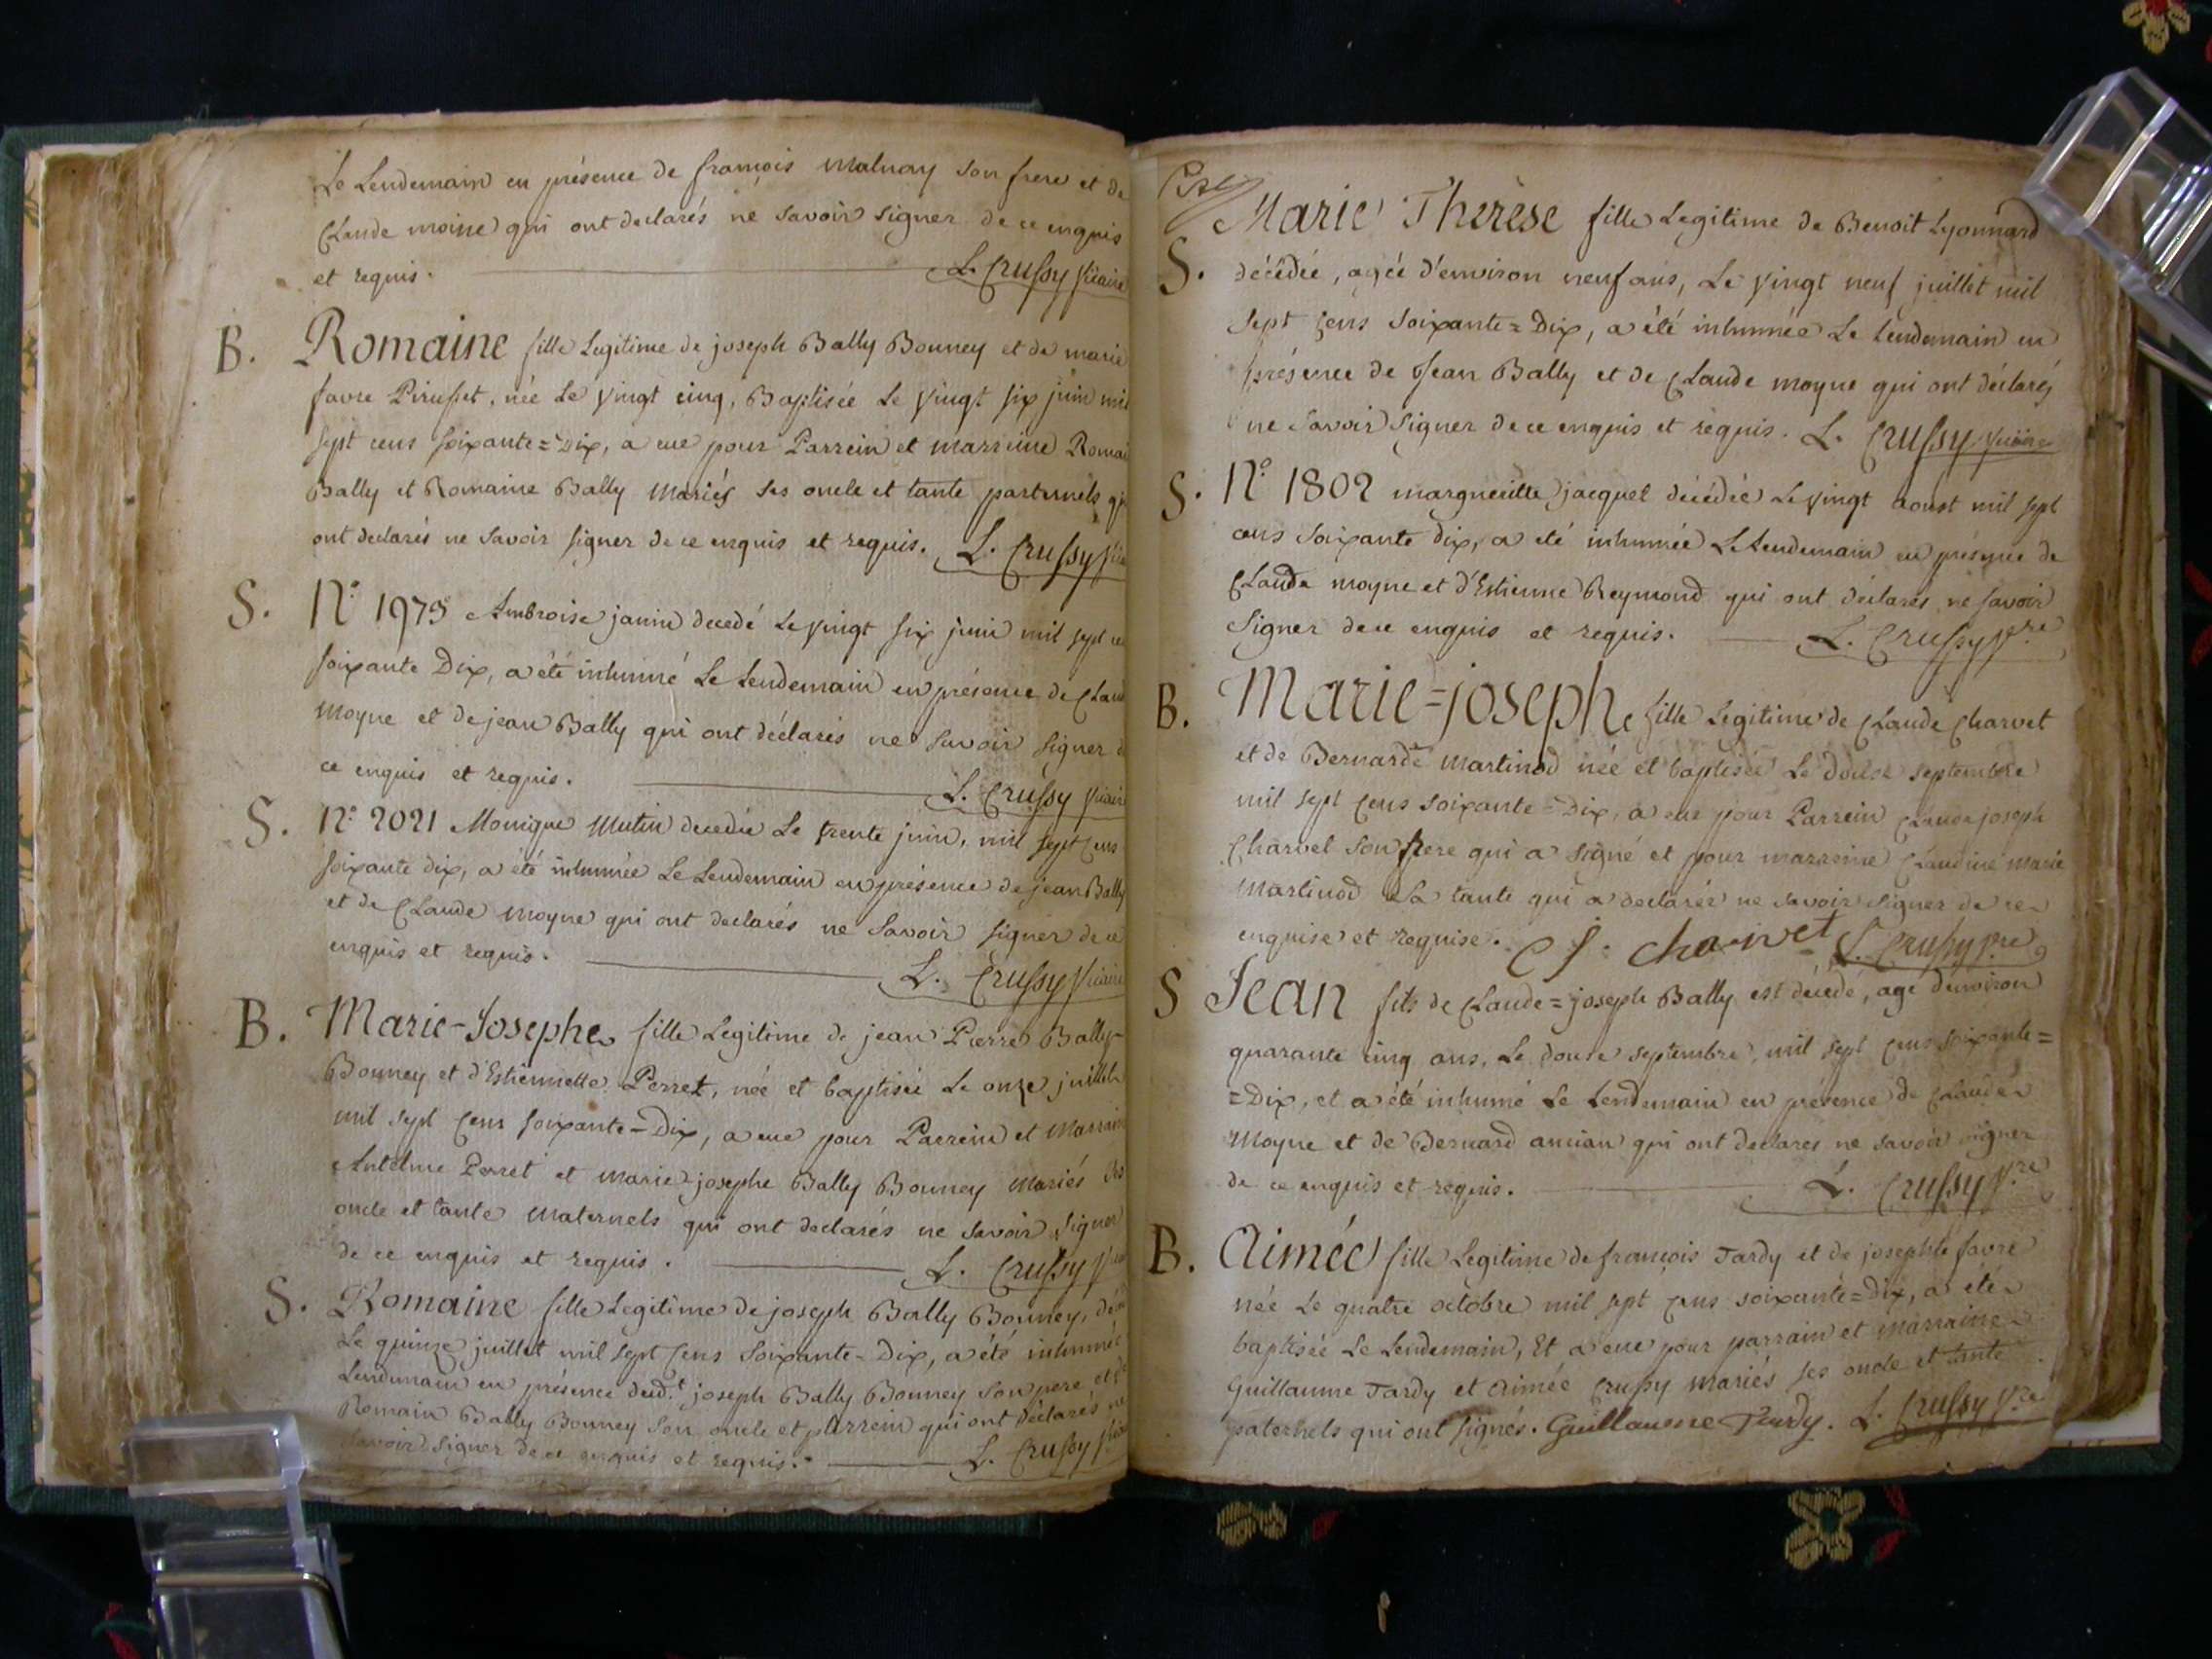 Le Lendemain en présence de françois Malnoy son frere et de
Claude moine qui ont declarés ne savoir signer de ce enquis
et requis. L. Crussy Vicaire
B. Romaine fille Legitime de joseph Bally Bonney et de marie
favre Pirusset, née Le vingt cinq, Baptisée Le vingt six juin mil
sept cens soixante=Dix, a eue pour Parrein et marreine Romai
Bally et Romaine Bally Mariés ses oncle et tante paternels qui
ont declarés ne savoir signer de ce enquis et requis. L. Crussy Vic
S. N.º 1979 Ambroise janin decedé Le vingt six juin mil sept ce
soixante Dix, a été inhumé Le Lendemain en présence de Claud
Moyne et de jean Bally qui ont déclarés ne savoir signer d
ce enquis et requis. L. Crussy Vicair
S. N.º 2021 Monique Mutin decedée Le trente juin, mil sept cens
soixante dix, a été inhumée Le Lendemain en présence de jean Bally
et de Claude Moyne qui ont declarés ne savoir signer de ce
enquis et requis. L. Crussy Vicaire
B. Marie-Josephe fille Legitime de jean Pierre Bally-
Bonney et d'Estiennette Perret, née et baptisée Le onze juillet
mil sept cens soixante=Dix, a eue pour Parrein et Marraine
Antelme Perret et marie josephe Bally Bonney Mariés ses
oncle et tante Maternels qui ont declarés ne savoir signer
de ce enquis et requis. L. Crussy Vic
S. Romaine fille Legitime de joseph Bally Bonney, déc
Le quinze juillet mil sept cens soixante-Dix, a été inhumée
Lendemain en présence dud.t joseph Bally Bonney son pere et de
Romain Bally Bonney son oncle et parrein qui ont déclarés ne
savoir signer de ce enquis et requis. L. Crussy Vic
Marie Therèse fille Legitime de Benoit Lyonnard
S. décédée, agée d'environ neuf ans, Le vingt neuf juillet mil
sept cens soixante=Dix, a été inhumée Le Lendemain en
présence de Jean Bally et de Claude moyne qui ont déclarés
ne savoir signer de ce enquis et requis. L. Crussy Vicaire
S. N.º 1802 margueritte jacquet décédée Le vingt aoust mil sept
cens soixante dix, a été inhumée Le Lendemain en présence de
Claude moyne et d'Estienne Reymond qui ont déclarés ne savoir
signer de ce enquis et requis. L. Crussy V.re
B. Marie=joseph fille Legitime de Claude Charvet
et de Bernarde Martinod née et baptisée Le douze septembre
mil sept cens soixante=Dix, a eue pour Parrein Claude joseph
Charvet son frere qui a signé et pour marreine Claudine marie
Martinod sa tante qui a declarée ne savoir signer de ce
enquise et requise. C j. charvet L. Crussy V.re
S Jean fils de Claude=joseph Bally est décédé, agé d'environ
quarante cinq ans, Le douze septembre, mil sept cens soixante=
=Dix, et a été inhumé Le Lendemain en présence de Claude
Moyne et de Bernard ancian qui ont declarés ne savoir signer
de ce enquis et requis. L. Crussy V.re
B. Aimée fille Legitime de françois Tardy et de josephte favre
née Le quatre octobre mil sept cens soixante=Dix, a été
baptisée Le Lendemain, Et a eue pour parrain et marraine
Guillaume Tardy et Aimée Crussy mariés ses oncle et tante
paternels qui ont signés. Guillaume Tardy. L. Crussy V.re